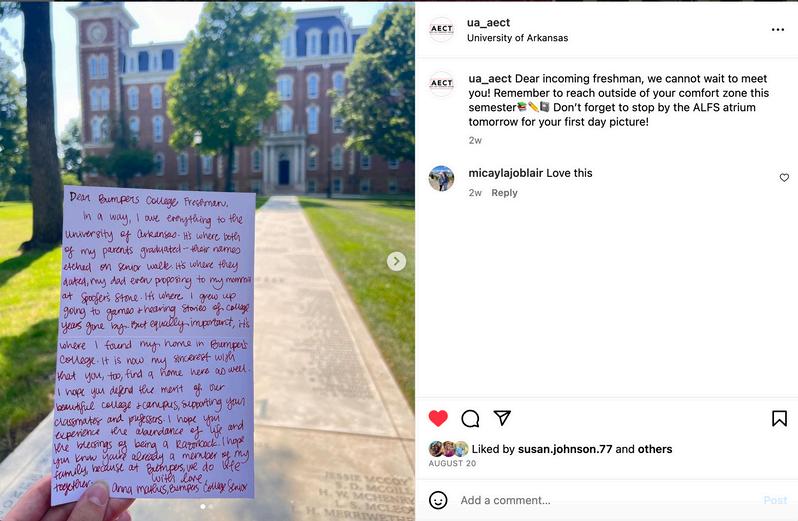 Dear Bumpers College Freshman,
In a way, I owe everything to the
university of Arkansas. It's where both
of my parents graduated - their names
etched on senior walk. It's where they
dated, my dad even proposing to my momma
at Spoofer's Stone. It's where I grew up
going to games + hearing stories of college
years gone by. But equally important, it's
where I found my home in Bumpers
College. It is now my sincerest wish
that you, too, find a home here as well.
I hope you defend the merit of our
beautiful college + campus, supporting your
classmates and professors. I hope you
experience the abundance of life and
the blessings of being a Razorback. I hope
you know you're already a member of my
family, because at Bumpers, we do life
together.
With love,
Anna Mathis, Bumpers College Senior
JESSIE MCCOY
D. MCGILL
H. W. MCHENRY
S. MCLEO
H. MERRIWETHE
AECT
ua_aect
University of Arkansas
AECT
ua_aect Dear incoming freshman, we cannot wait to meet
you! Remember to reach outside of your comfort zone this
semester📚✏️📓 Don't forget to stop by the ALFS atrium
tomorrow for your first day picture!
2w
micaylajoblair Love this
2w Reply
Liked by susan.johnson.77 and others
AUGUST 20
Add a comment...
Post